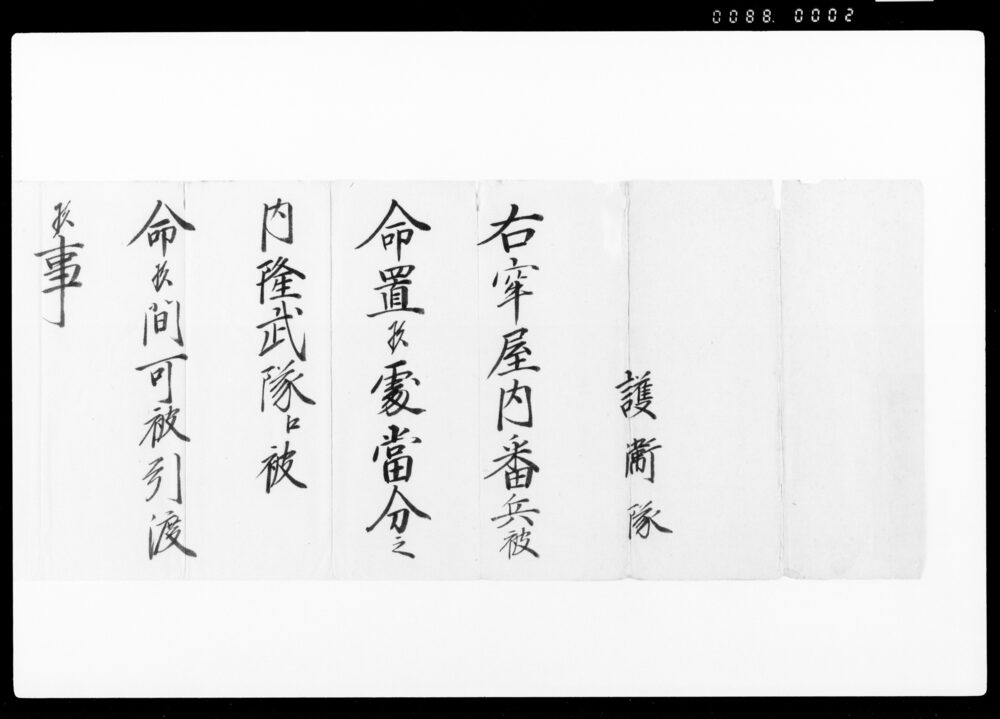 0088. 0002
護衛隊
右牢屋内番兵被
命置候處當分之
内隆武隊口被
命候間可被引渡
候事